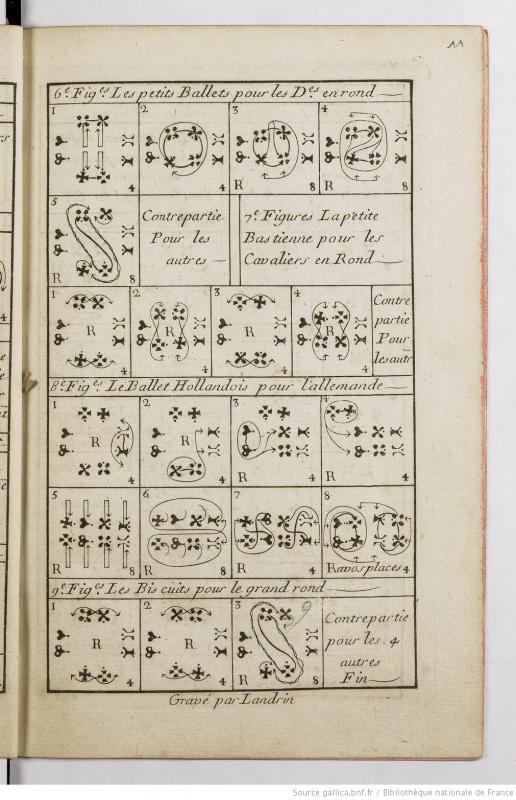 6.e Fig.es Les petits Ballets pour les D.es en rond
1 2 3 4
4 4 R 8 R 8
5
R 8
Contrepartie
Pour les
autres
7.e Figures La petite
Bastienne pour les
Cavaliers en Rond
1 2 3 4
R R R R
4 4 4 4
Contre
partie
Pour
les autr
8.e Fig.es Le Ballet Hollandois pour l'allemande
1 2 3 4
R R
4 4 R 4 R 4
5 6 7 8
R 8 R 8 R 4
R a vos places 4
9.e Fig.es Les Biscuits pour le grand rond
1 2 3
R R
4 4 R 8
Contrepartie
pour les 4
autres
Fin
Gravé par Landrin
Source gallica.bnf.fr / Bibliothèque nationale de France